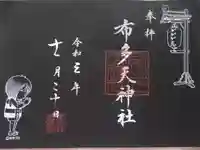 奉拝
布多天神社
令和元年
十一月三十日